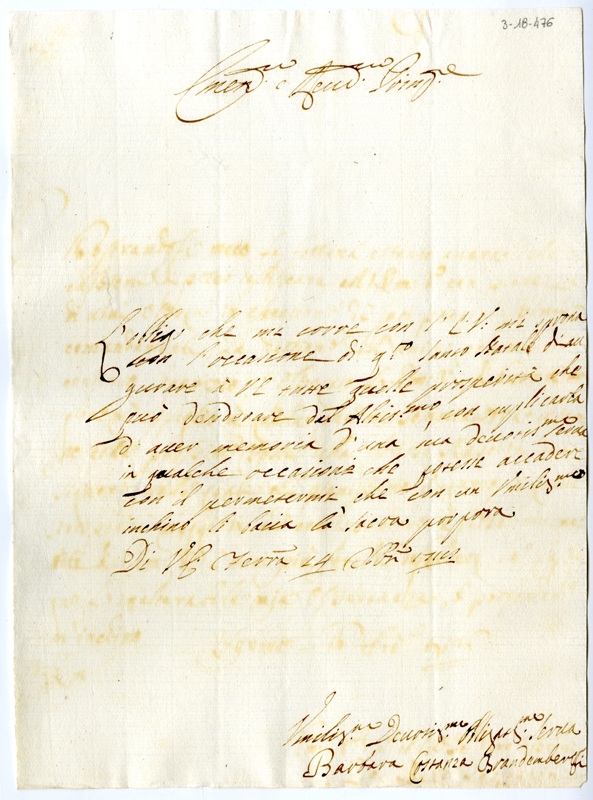 3-18-476
Emen.mo e Reud.mo Prin.pe
L'obligo che mi corre con l'E.V. mi sprona
con l'occasione di q.to santo Natale d'au
gurare à V.E. tutte quelle prosperità che
può desiderare dal Altis.mo con suplicarla
d'auer memoria d'una sua deuotis.ma serua
in qualche occasione che potesse accadere
con il permetermi che con un Vmilis.mo
inchino li bacia la sacra porpora
Di V.E. Ferra 14
Vmilis.ma Deuotis.ma Obligat.ma Serua
Barbara Costanza Brandemberghi